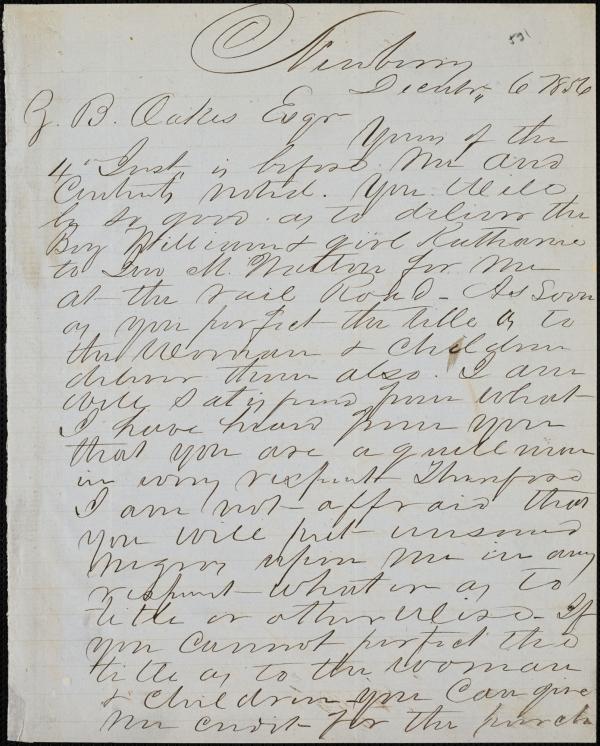 Newberry
Decnbr, 6 1856
Z. B. Oakes Esqr
Yours of the
4" Inst, is before Me and
Contents noted. You Will
be so good as to deliver the
Boy William & girl Katharine
to Jno M. Walton for Me
at the rail Road - As Soon
as you perfect the title as to
the Woman & Children
deliver them also. I am
well Satisfied from What
I have heard from you
that you are a gentleman
in every respect Therefore
I am not affraid that
you will put unsound
Negros upon Me in any
respect whatever as to
title or other Wise - If
you cannot perfect the
title as to the Woman
& Children you Can give
Me credit for the purch